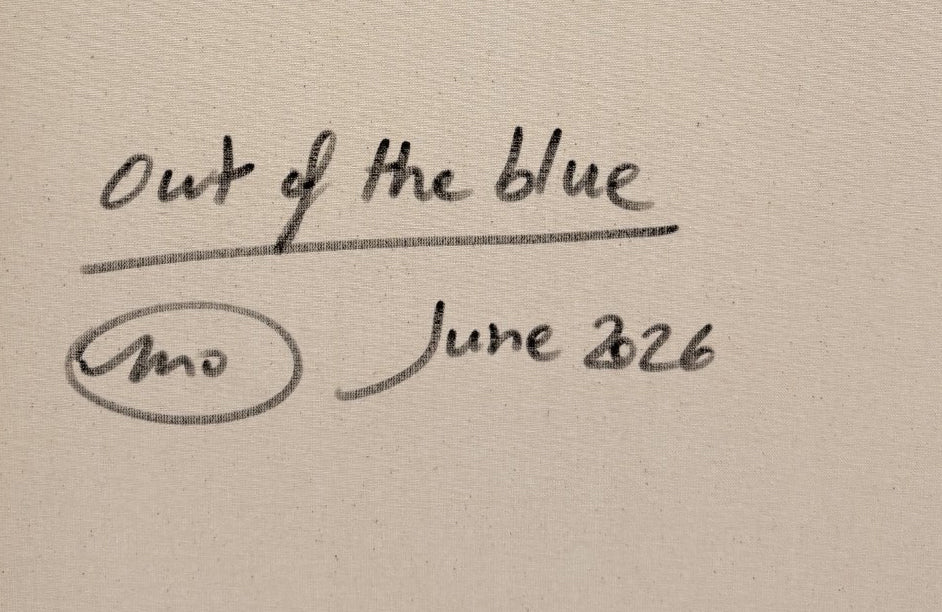 Out of the blue
mo June 2026